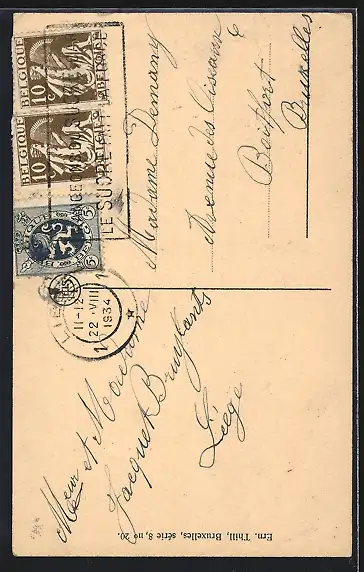 BELGIQUE
10 c
BELGIQUE
10 c
BELGIQUE
5 c
11-12
22 VIII
1934
Madame Demany
Avenue des Cissowm
Boitsfort
Bruxelles
Meur et Madame
Jacquet Bruylants
Liège
Ern. Thill, Bruxelles, série 8, no 20.